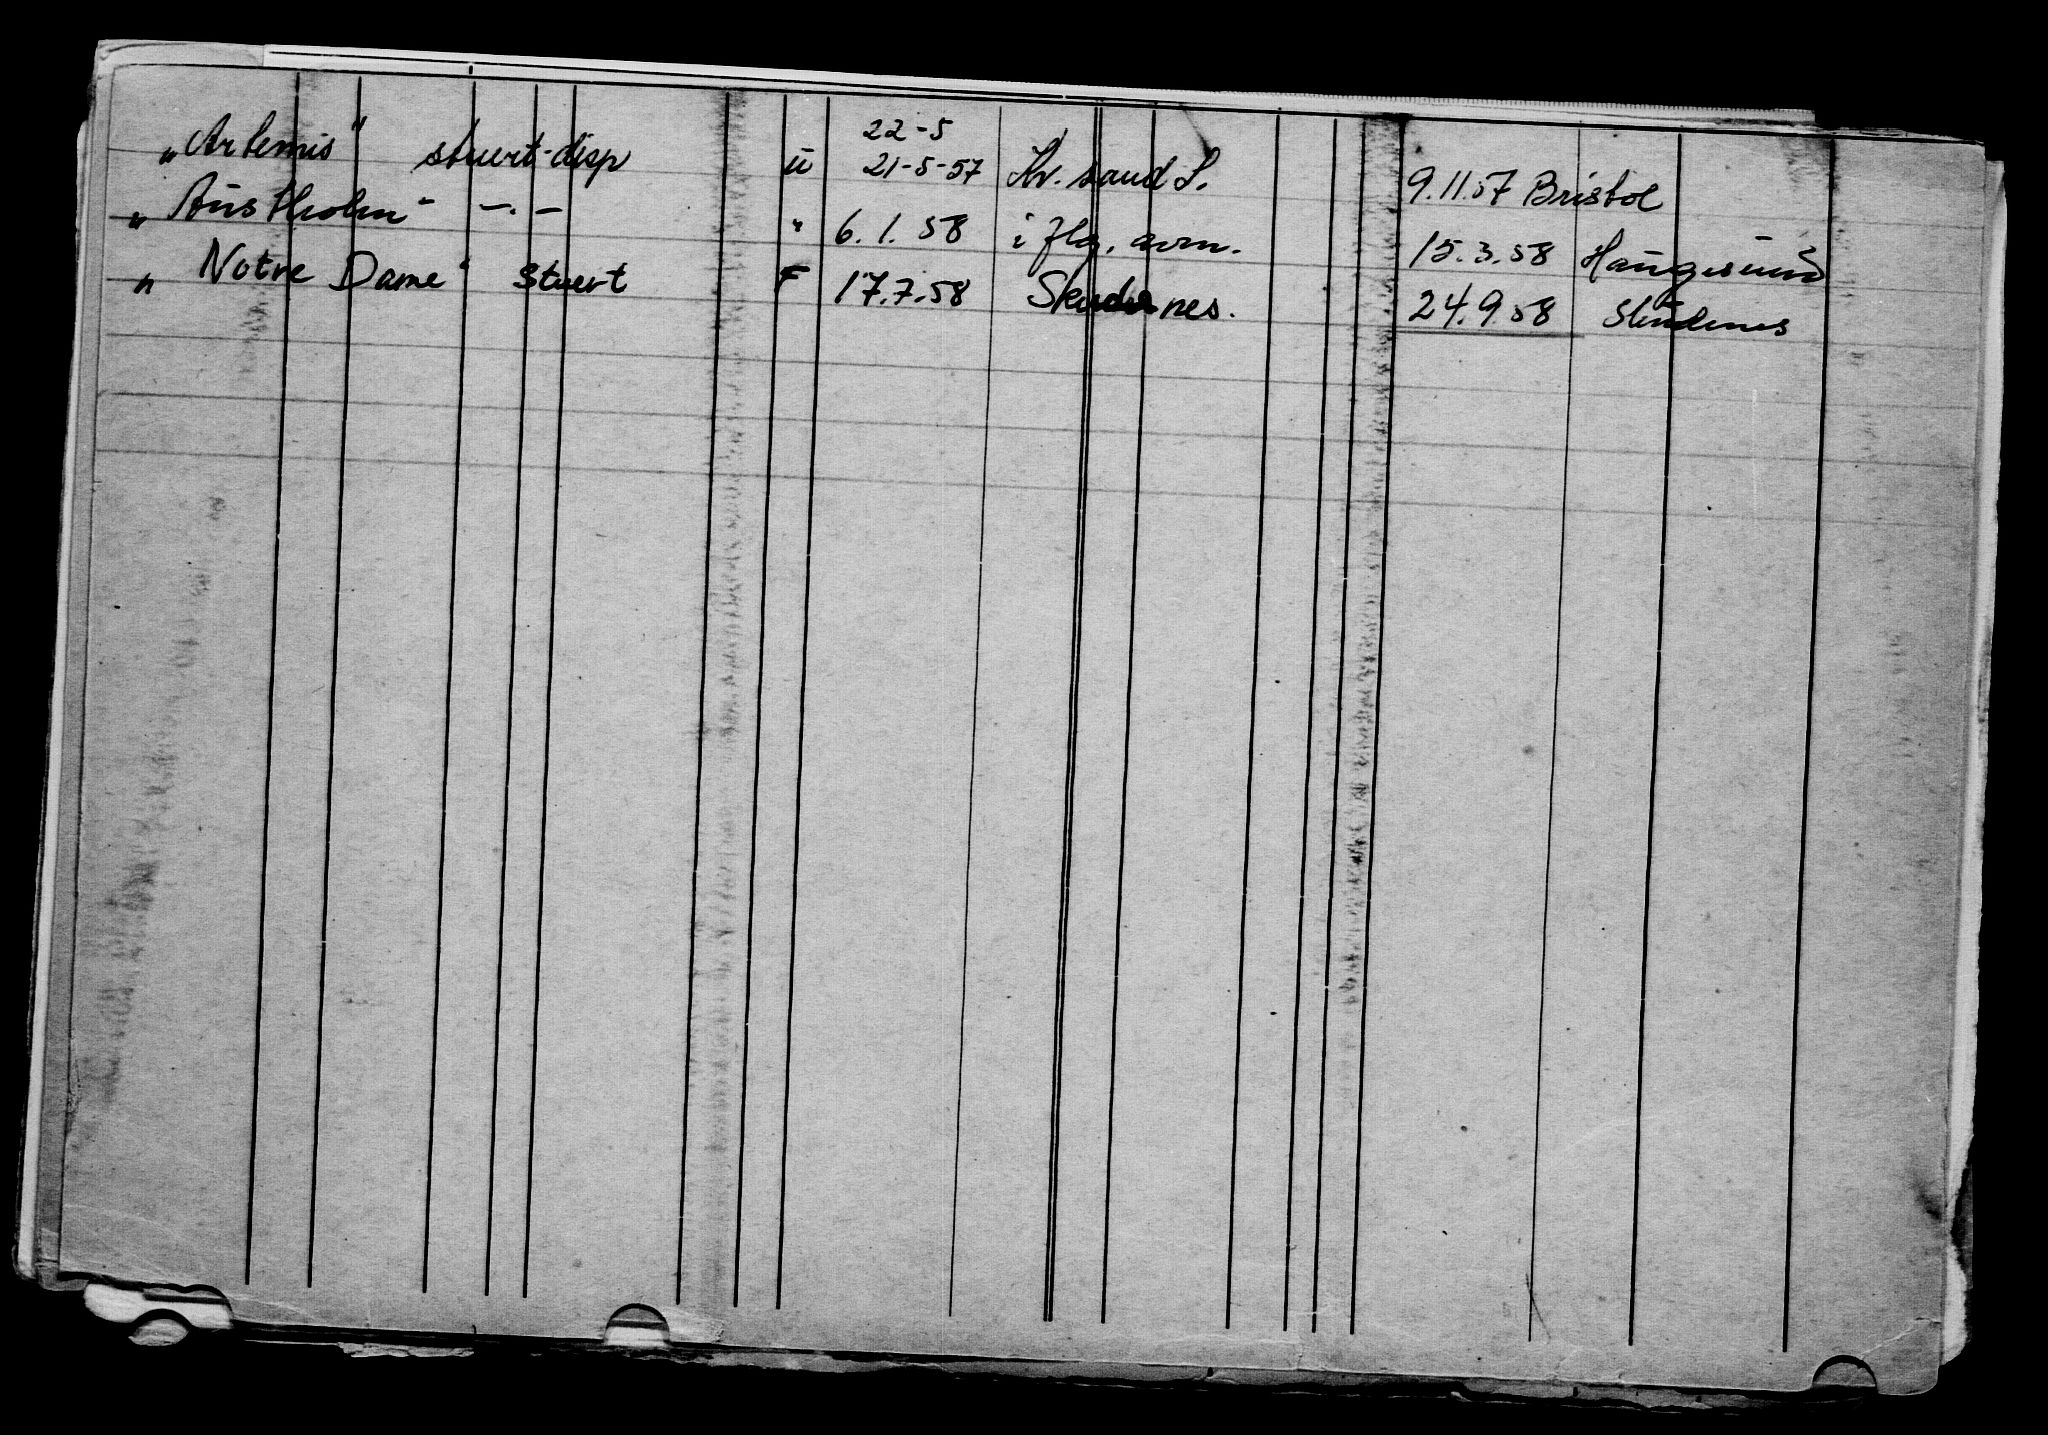 22-5
„Artemis" stuert-disp u 21-5-57 Kr. sand S. 9.11.57 Bristol
„Austholm" —·— " 6.1.58 i flg. 15.3.58 Haugesund
„Notre Dame" Stuert F 17.7.58 Skudenes. 24.9.58 Skudenes